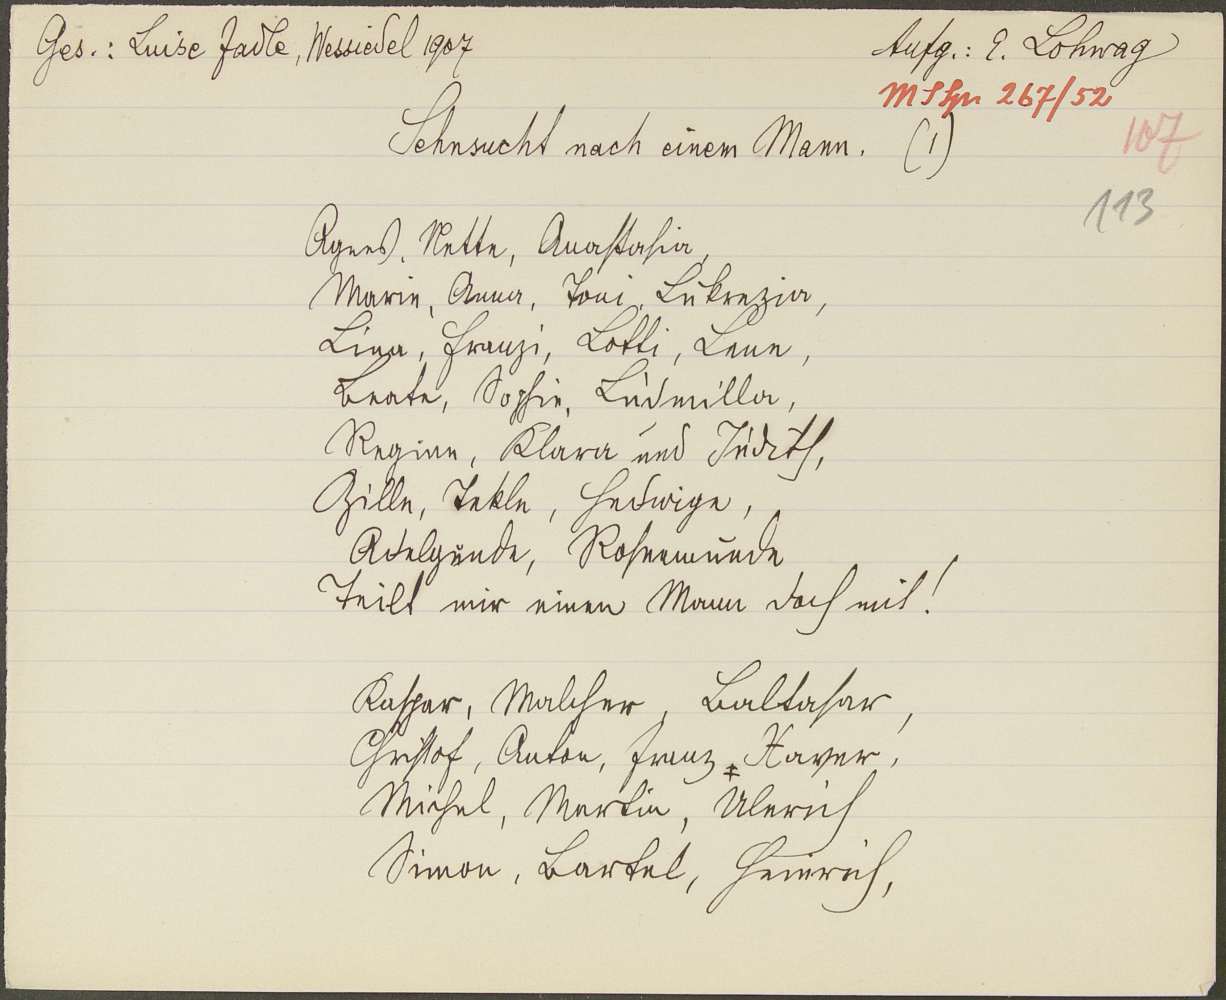 Ges.: Luise Jadle, Wessiedel 1907
Aufg.: E. Lohwag
267/52
Sehnsucht nach einem Mann. (1)
107
113
Agnes, Nette, Anastasia,
Marie, Anna, Toni, Lukrezia,
Lina, Franzi, Lotti, Lene,
Beate, Sophie, Ludmilla,
Regine, Klara und Judith,
Zille, Tekle, Hedwige,
Adelgunde, Rosemunde
Teilt mir einen Mann doch mit!
Kaspar, Malcher, Baltasar,
Christof, Anton, Franz = Xaver,
Michel, Martin, Ulerich
Simon, Bartel, Heinrich,